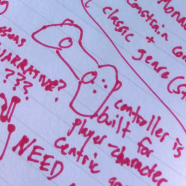 constrain
classic + genre
NARRATIVE?
???
controller is
built for
player-character
centric
NEED